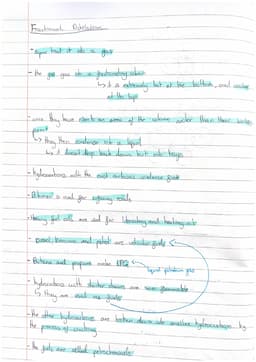 Fractional Distillation
- vapour heat it into a gas
- the gas goes into a fractionating column
↳ it is extremely hot at the bottom, and cooler
at the top
- once they have reached an area of the column under than their boiling
point
↳ they then condense into a liquid
↳ it doesn't drop back down but into trays
- hydrocarbons with the most carbons condense first
- Bitumen is used for surfacing roads
- Heavy fuel oils are used for lubricating and heating oil
- Diesel, kerosene and petrol are vehicle fuels
- Butane and propane make LPG
↳ liquid petroleum gas
- hydrocarbons with shorter chains are more flammable
↳ they are used as fuels
- the other hydrocarbons are broken down into smaller hydrocarbons by
the process of cracking
- the fuels are called petrochemicals